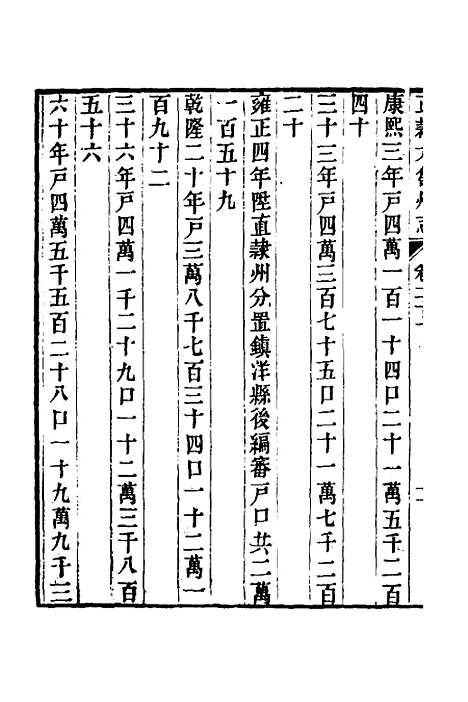 康熙三年戸四萬一百一十四口二十一萬五千二百
四十
三十三年戸四萬三百七十五口二十一萬七千二百
二十
雍正四年陞直隷州分置鎮洋縣後編審戸口共二萬
一百五十九
乾隆二十年戸三萬八千七百三十四口一十二萬一
百九十二
三十六年戸四萬一千二十九口一十二萬三千八百
五十六
六十年戸四萬五千五百二十八口一十九萬九千三